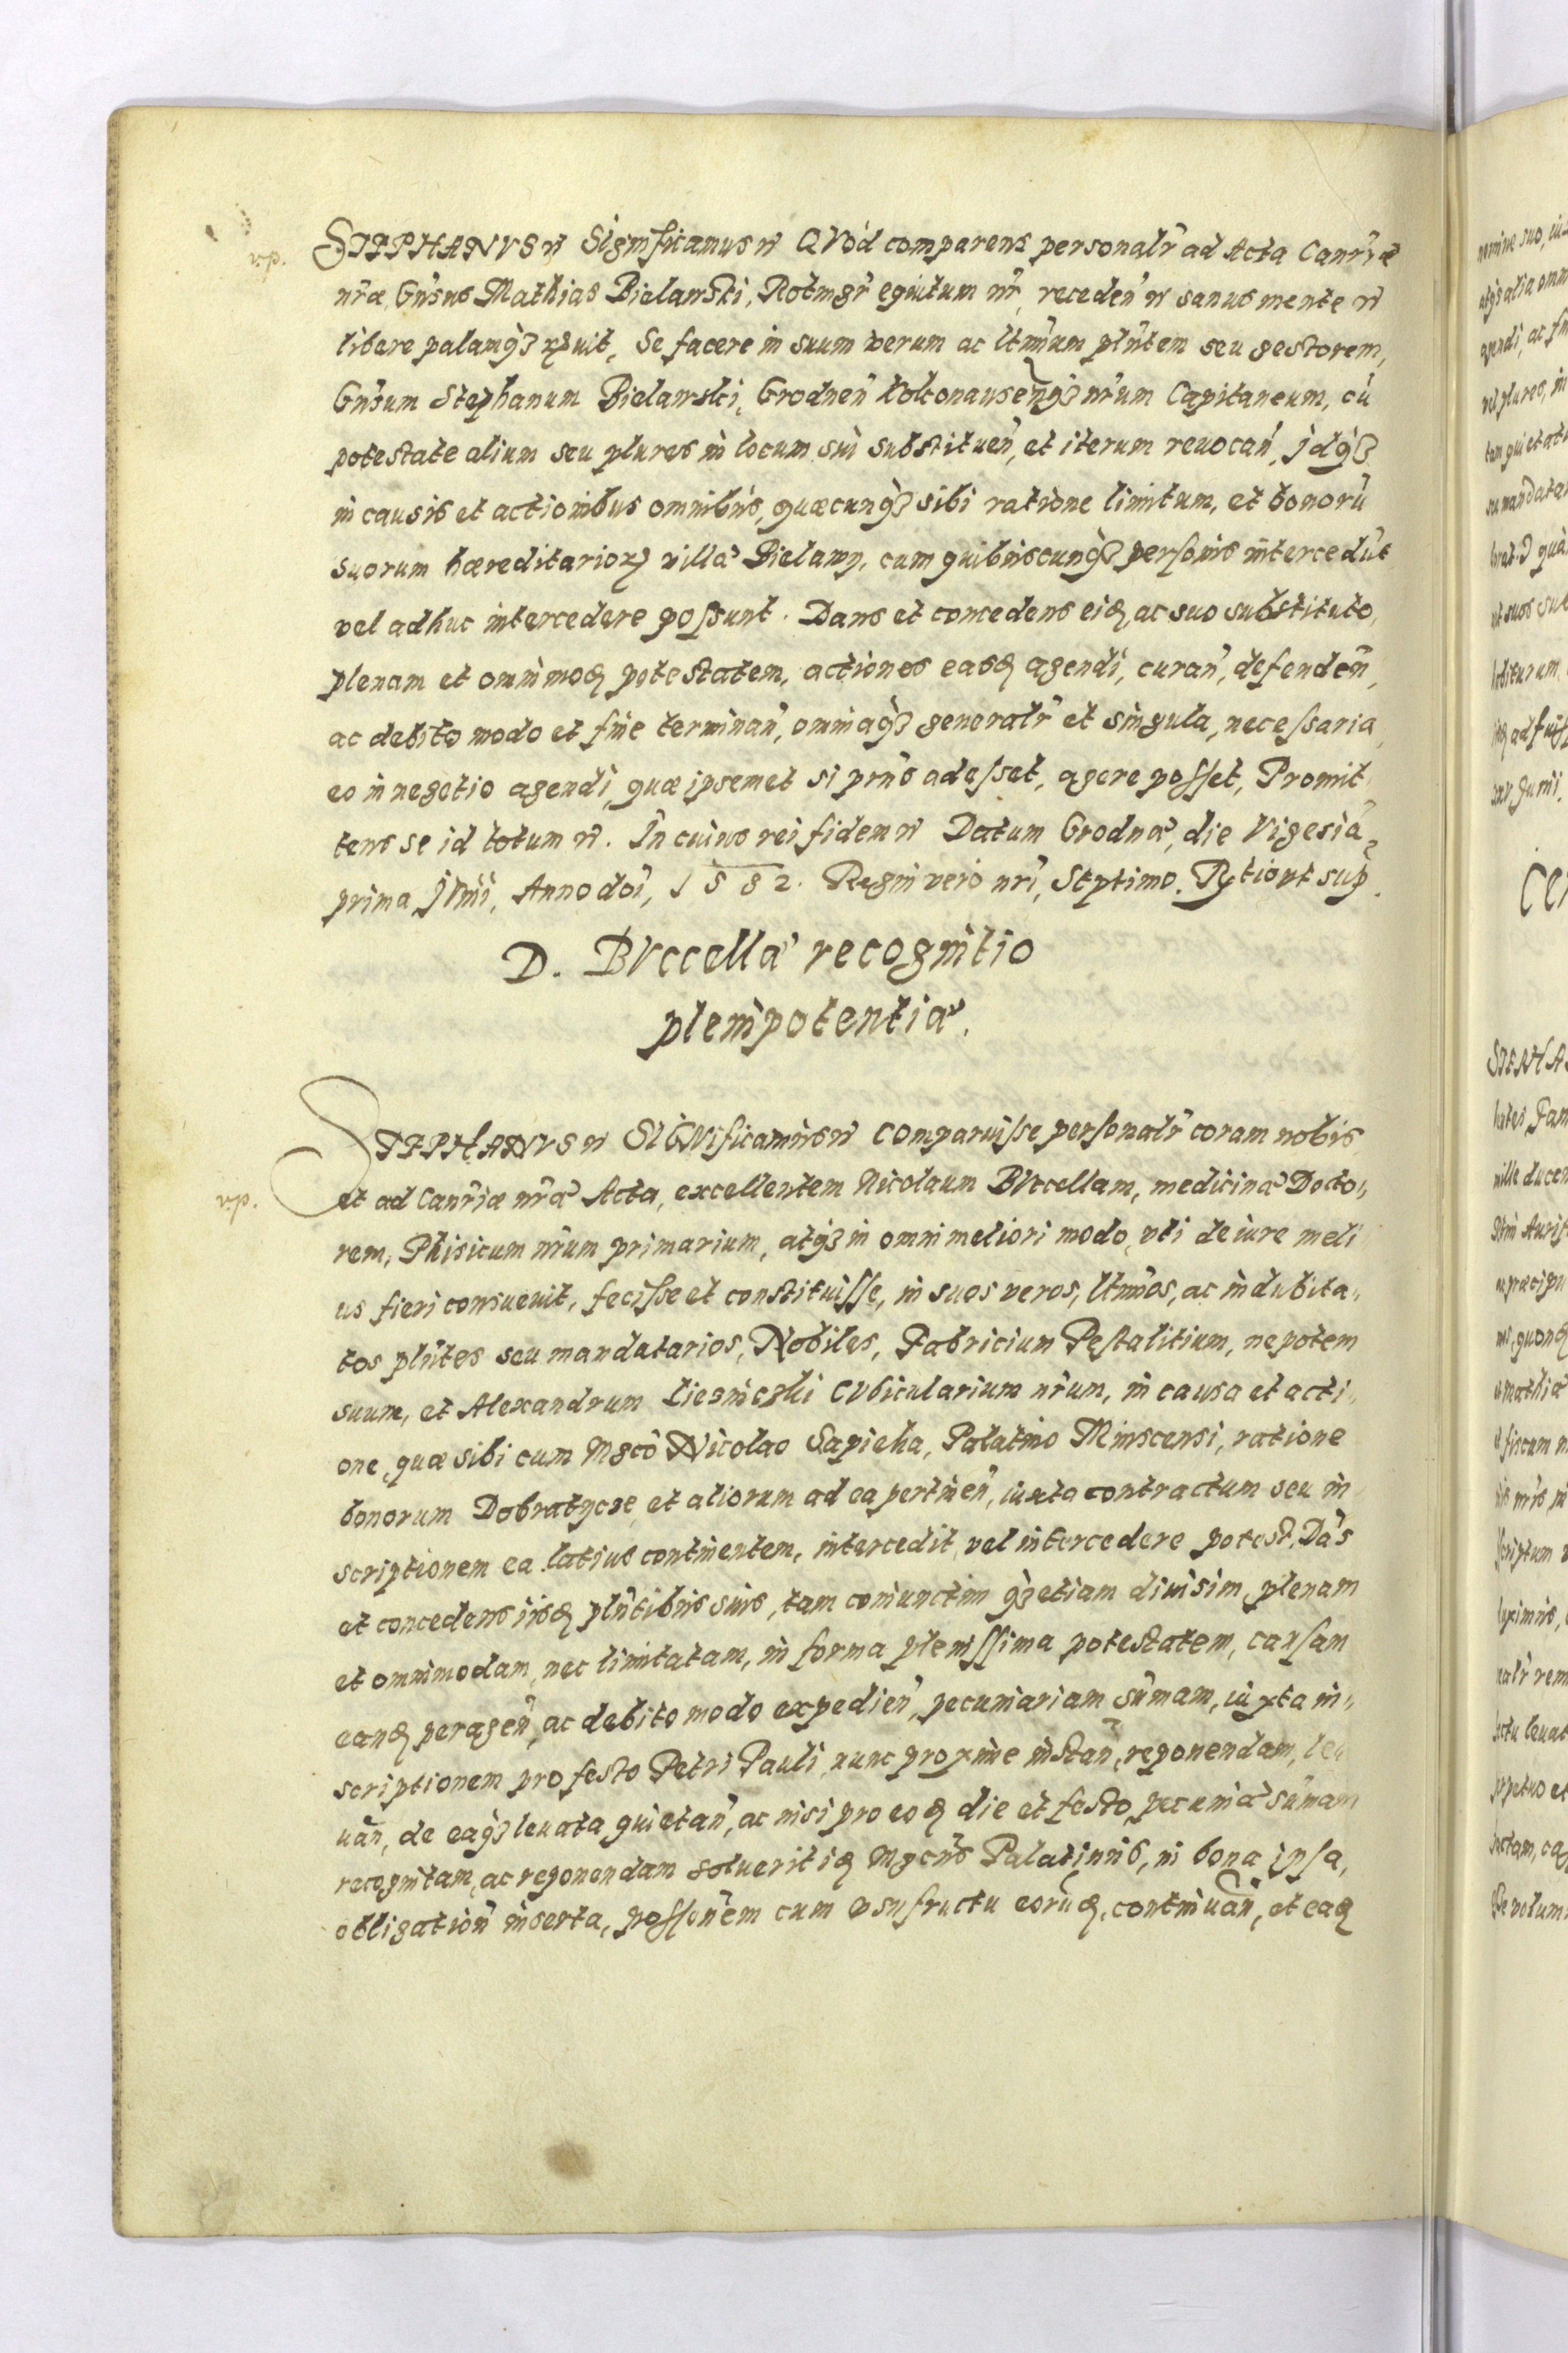 STEPHANVS etc Significamus etc QVod comparens personalr̃ ad Acta Canr̃iæ
nr̃æ, Gn̄sus Mathias Bielawski, Rotmgr̃ equitum nr̃, receden̄ etc sanus mente etc
libere palamq̃ꝫ Rꝫuit, Se facere in suum verum ac ltm̄um pln̄tem seu gestorem,
Gn̄sum Stephanum Bielawski, Grodnen̄ Kolconausen̄q̃ꝫ nr̃um Capitaneum, cũ
potestate alium seu plures in locum sui substituen̄, et iterum reuocan̄, jdq̃ꝫ
in causis et actionibus omnibus, quæcunq̃ꝫ sibi ratione limitum, et bonorũ
suorum hæreditarioꝝ villæ Bielawy, cum quibuscunq̃ꝫ personis intercedũt
vel adhuc intercedere possunt. Dans et concedens eiꝺ, ac suo substituto,
plenam et omnimoꝺ potestatem, actiones easꝺ agendi, curan̄, defenden̄,
ac debito modo et fine terminan̄, omniaq̃ꝫ generalr̃ et singula, necessaria,
eo in negotio agendi, quæ ipsemet si prn̄s adesset, agere posset, Promit
tens se id totum etc. In cuius rei fidem etc Datum Grodnæ, die Vigesiā
prima Jun̄i, Anno doī, 1582. Regni vero nr̃i, Septimo. Rꝫtio vt sup̱.
D. BVccellæ recognitio
plenipotentiæ.
STEPHANVS etc SIGNificamus etc COmparuisse personalr̃ coram nobis
et ad Canr̃iæ nr̃æ Acta, excellentem Nicolaum BVccellam, medicinæ Docto,,
rem, Phisicum nr̃um primarium, atq̃ꝫ in omni meliori modo, vti de iure meli
us fieri consueuit, fecisse et constituisse, in suos veros, ltm̄os, ac indubita,,
tos pln̄tes seu mandatarios, Nobiles, Fabricium Pestalitium, nepotem
suum, et Alexandrum Liesniczki CVbicularium nr̃um, in causa et acti
one, quæ sibi cum Mgcō Nicolao Sapieha, Palatino Minscensi, ratione
bonorum Dobratycze, et aliorum ad ea pertinen̄, iuxta contractum seu in
scriptionem ea latius continentem, intercedit, vel intercedere potest, Dās
et concedens iisꝺ pln̄tibus suis, tam coniunctim q̃ꝫ etiam diuisim, plenam
et omnimodam, nec limitatam, in forma plenissima potestatem, causam
eanꝺ peragen̄, ac debito modo expedien̄, pecuniariam sum̄am, iuxta in,,
scriptionem pro festo Petri Pauli, nunc proxime instan̄, reponendam, le
uan̄, de eaq̃ꝫ leuata quietan̄, ac nisi pro eoꝺ die et festo, pecuniæ sum̄am
recognitam, ac reponendam soluerit iꝺ Mgcus Palatinus, in bona ipsa,
obligation̄ inserta, possōnem cum vsufructu eorūꝺ, continuan̄, et eaꝺ